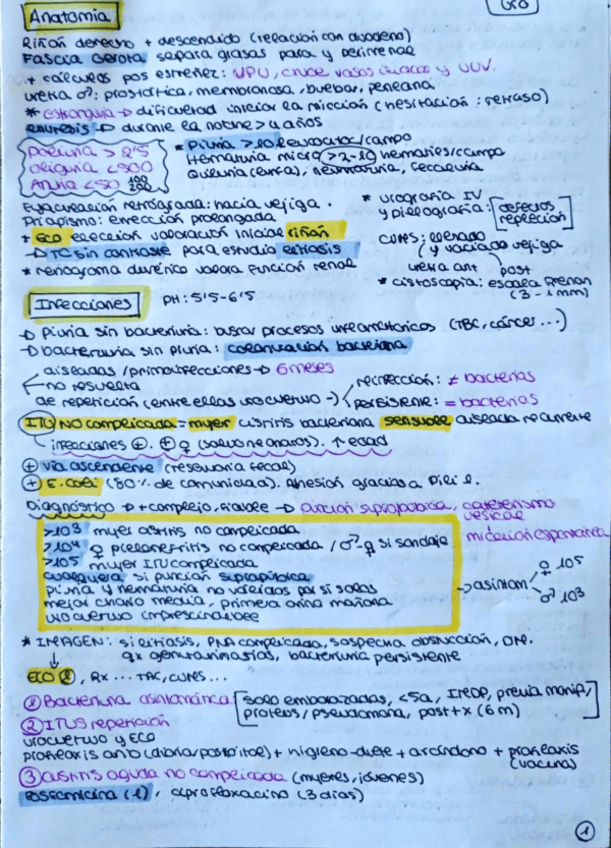 URO
Anatomía
Riñón derecho + descendido (relación con duodeno)
Fascia Gerota separa grasas para y perirrenal
+ cálculos por estrechez: UPU, cruce vasos iliacos y UUV.
uretra ♂: prostática, membranosa, bulbar, peneana
* estranguria → dificultad iniciar la micción (hesitación: retraso)
enuresis → durante la noche > 4 años
Poliuria > 2'5
oliguria < 500
Anuria < 50
* Piuria > 10 leucocitos/campo
Hematuria micro > 2-10 hematíes/campo
Quiluria (linfa), neumaturia, fecaluria
Eyaculación retrógrada: hacia vejiga.
Priapismo: erección prolongada
+ ECO elección valoración inicial riñón
→ TC sin contraste para estudio litiasis
* renograma diurético valora función renal
* urografía IV
y pielografía: [defectos repleción]
CUMS: llenado
y vaciado vejiga
uretra ant post
* cistoscopia: escala French
(3 - 1 mm)
Infecciones PH: 5'5-6'5
→ Piuria sin bacteriuria: buscar procesos inflamatorios (TBC, cáncer...)
→ bacteriuria sin piuria: colonización bacteriana
aisladas/primoinfecciones → 6 meses
no resuelta
de repetición (entre ellas urocultivo -) reinfección: ≠ bacterias
persistente: = bacterias
ITU NO complicada = mujer cistitis bacteriana sensible aislada recurrente
infecciones ⊕. ⊕ ♀ (salvo neonatos). ↑ edad
⊕ vía ascendente (reservorio fecal)
⊕ E. coli (80% de comunidad). Adhesión gracias a Pili 1.
Diagnóstico → + complejo, fiable → punción suprapúbica, cateterismo vesical
micción espontánea
>10³ mujer cistitis no complicada
>10⁴ ♀ pielonefritis no complicada / ♂-♀ si sondaje
>10⁵ mujer ITU complicada
cualquiera si punción suprapúbica
piuria y hematuria no válidos por sí solos
mejor chorro media, primera orina mañana
urocultivo imprescindible
→ asintom ♀ 10⁵
♂ 10³
* IMAGEN: si litiasis, PNA complicada, sospecha obstrucción, DM.
qx genitourinarias, bacteriuria persistente
ECO, Rx ... TAC, CUMS...
① Bacteriuria asintomática [solo embarazadas, <5a, IREDP, previa manip/
proteus/pseudomona, post tx (6m)
② ITUS repetición
urocultivo y ECO
profilaxis antb (diaria/postcoital) + higieno-diete + arándano + profilaxis
(vacuna)
③ cistitis aguda no complicada (mujeres, jóvenes)
Fosfomicina (1), ciprofloxacino (3 días)
1